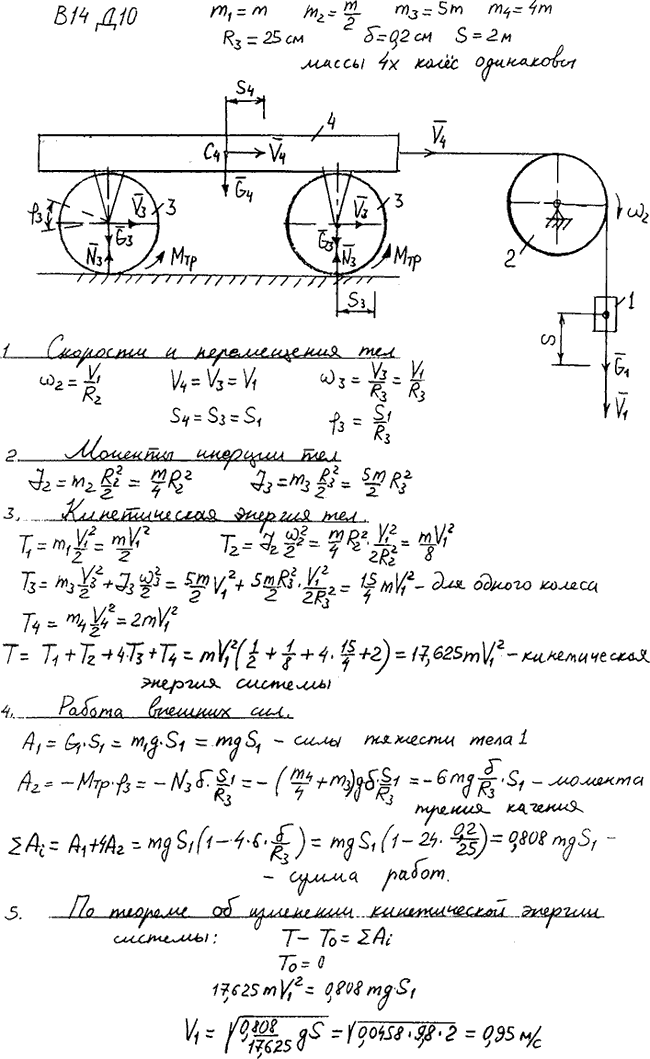 В14 Д10 m₁ = m m₂ = m/2 m₃ = 5m m₄ = 4m
R₃ = 25 см δ = 0,2 см S = 2 м
массы 4х колёс одинаковы
S₄
4
C₄ V̅₄ V̅₄
G̅₄
φ₃ V̅₃ 3 V̅₃ 3 ω₂
G̅₃ G̅₃ 2
N̅₃ Mтр N̅₃ Mтр
S₃
1
S
G̅₁
V̅₁
1 Скорости и перемещения тел
ω₂ = V₁/R₂ V₄ = V₃ = V₁ ω₃ = V₃/R₃ = V₁/R₃
S₄ = S₃ = S₁ φ₃ = S₁/R₃
2. Моменты инерции тел
J₂ = m₂ R₂²/2 = m/4 R₂² J₃ = m₃ R₃²/2 = 5m/2 R₃²
3. Кинетическая энергия тел.
T₁ = m₁ V₁²/2 = mV₁²/2 T₂ = J₂ ω₂²/2 = m/4 R₂² · V₁²/2R₂² = m/8 V₁²
T₃ = m₃ V₃²/2 + J₃ ω₃²/2 = 5m/2 V₁² + 5mR₃²/2 · V₁²/2R₃² = 15/4 mV₁² - для одного колеса
T₄ = m₄ V₄²/2 = 2mV₁²
T = T₁ + T₂ + 4·T₃ + T₄ = mV₁² (1/2 + 1/8 + 4 · 15/4 + 2) = 17,625 mV₁² - кинетическая
энергия системы
4. Работа внешних сил.
A₁ = G₁·S₁ = m₁g·S₁ = mgS₁ - силы тяжести тела 1
A₂ = -Mтр·φ₃ = -N₃δ · S₁/R₃ = -(m₄/4 + m₃)gδ · S₁/R₃ = -6mg δ/R₃ · S₁ - момента
трения качения
ΣAi = A₁ + 4A₂ = mgS₁ (1 - 4·6 · δ/R₃) = mgS₁ (1 - 24 · 0,2/25) = 0,808 mgS₁ -
- сумма работ.
5. По теореме об изменении кинетической энергии
системы: T - T₀ = ΣAi
T₀ = 0
17,625 mV₁² = 0,808 mg·S₁
V₁ = √(0,808/17,625 gS) = √(0,0458·9,8·2) = 0,95 м/с